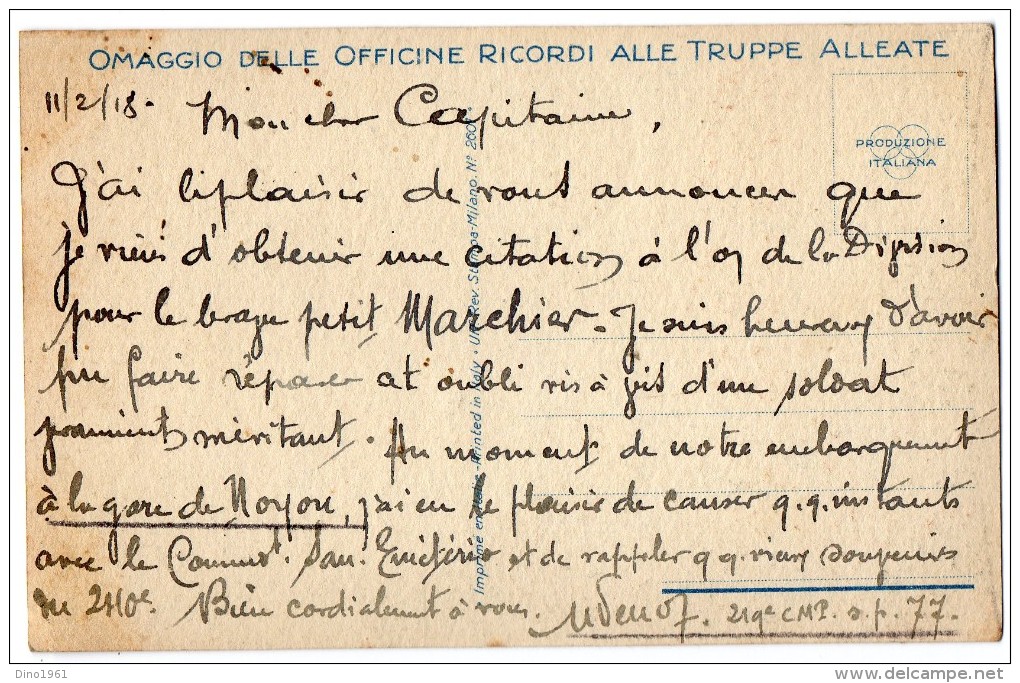 OMAGGIO DELLE OFFICINE RICORDI ALLE TRUPPE ALLEATE
11/2/18. Mon cher Capitaine,
PRODUZIONE
ITALIANA
J'ai le plaisir de vous annoncer que
je viens d'obtenir une citation à l'o/ de la Division
pour le brave petit Marchier. Je suis heureux d'avoir
pu faire réparer cet oubli vis à vis d'un soldat
vraiment méritant. Au moment de notre embarquement
à la gare de Noyon, j'ai eu le plaisir de causer q.q. instants
avec le Command. San. et de rappeler q q. vieux souvenirs
du 240e. Bien cordialement à vous. 219e CMP. s.p. 77.
Imprimé en Italie - Printed in Italy • Uff. Rev. Stampa - Milano. N° 260
Dino1961
delcampe.net